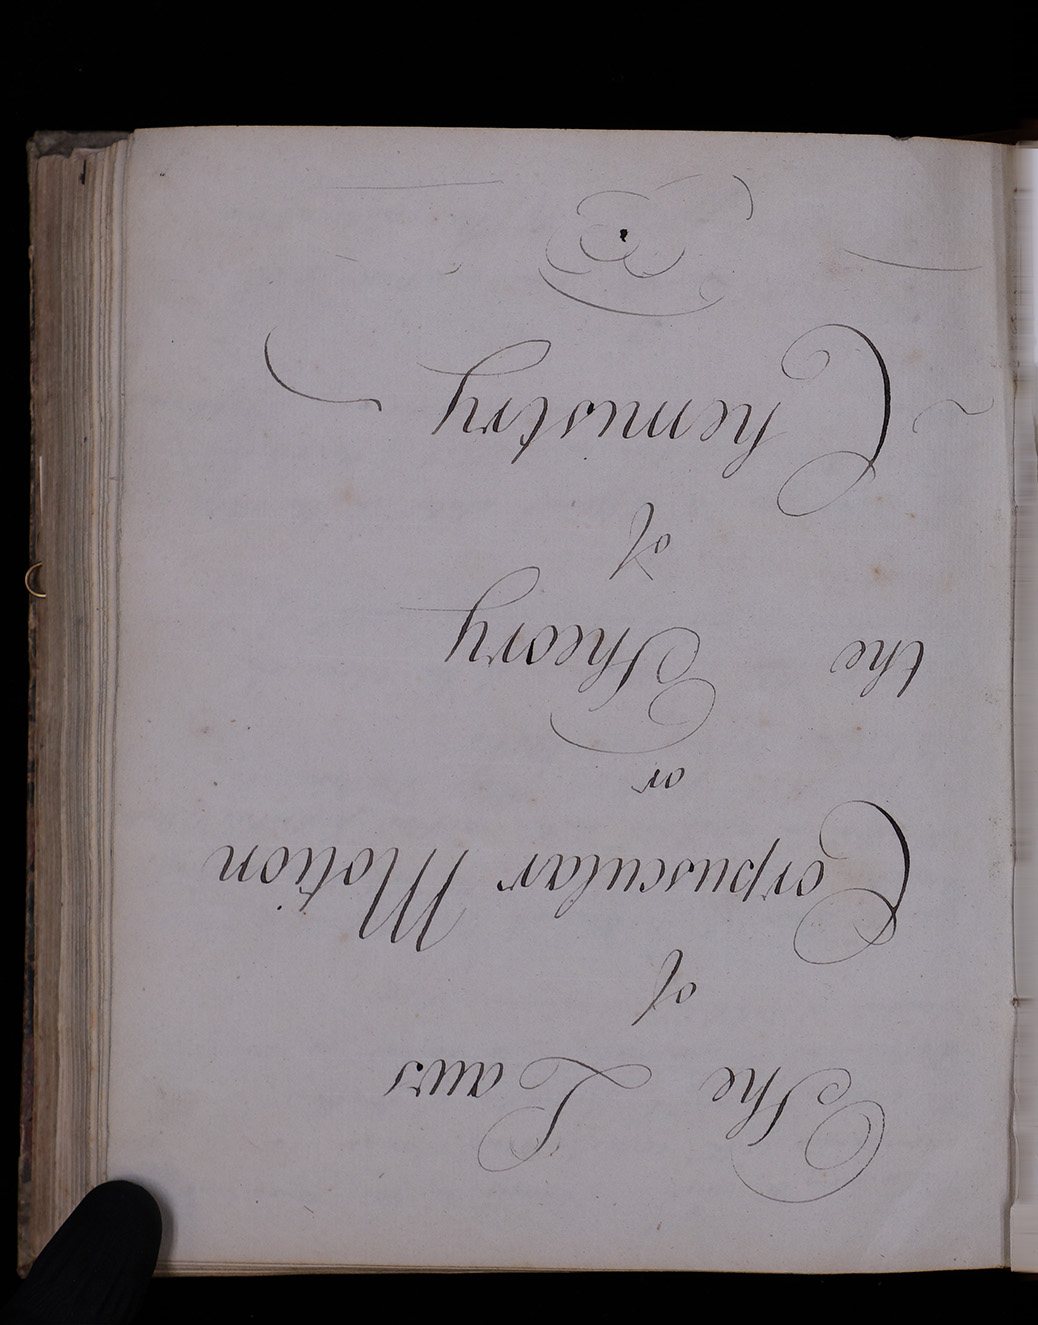 The Laws
of
Corpuscular Motion
or
the Theory
of
Chemistry